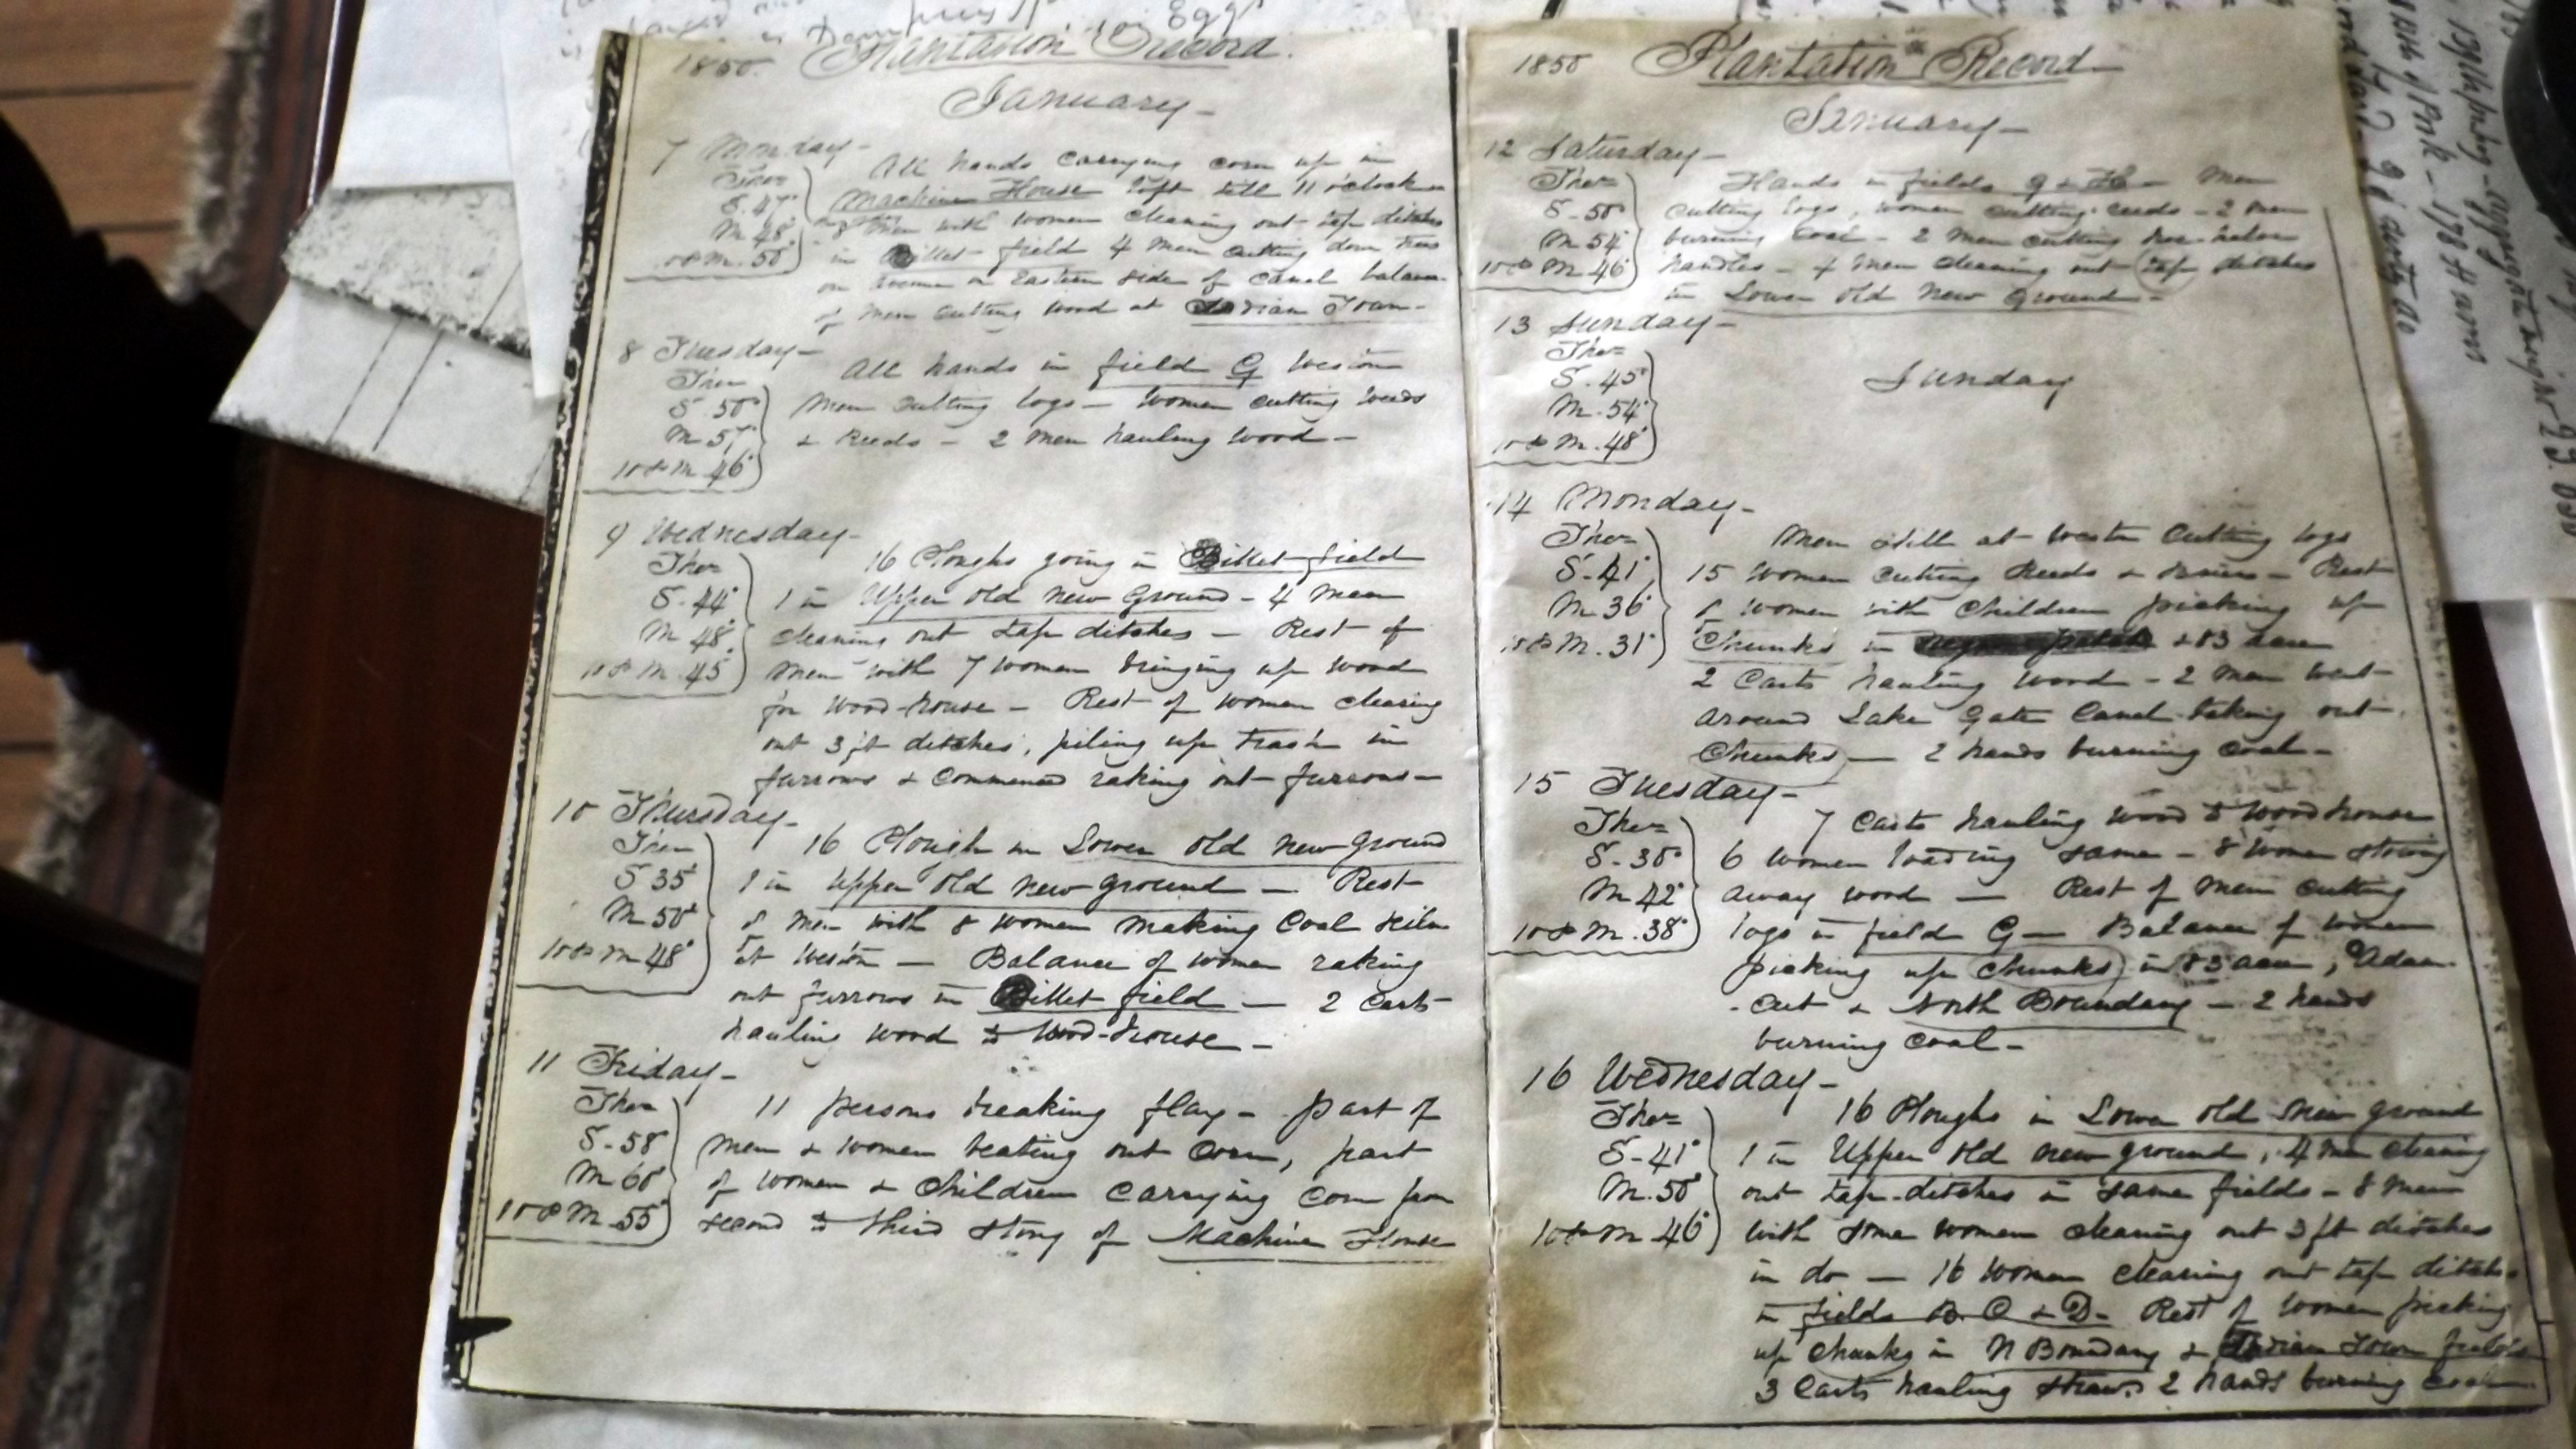 1850. Plantation Record.
January –
7 Monday –
Ther
S. 47°
M 48°
10 P M. 50°
All hands carrying corn up in
Machine House loft till 11 o'clock
men with women cleaning out tap ditches
in Billet field 4 men cutting down trees
on avenue on Eastern side of Canal balance
of men cutting wood at Indian Town –
8 Tuesday –
Ther
S. 50°
M 57°
10 P M. 46°
All hands in field G Weston
Men cutting logs – Women cutting weeds
& Reeds – 2 men hauling wood –
9 Wednesday –
Ther
S. 44°
M 48°
10 P M. 45°
16 Ploughs going in Billet field
1 in Upper old new Ground – 4 men
cleaning out tap ditches – Rest of
men with 7 women bringing up wood
for Wood-house – Rest of women clearing
out 3 ft ditches, piling up trash in
furrows & commenced raking out furrows –
10 Thursday –
Ther
S 35°
M 50°
10 P M 48°
16 Plough in Lower old new Ground
1 in Upper old new ground – Rest
of men with 8 women making Coal Kiln
at Weston – Balance of women raking
out furrows in Billet field – 2 Carts
hauling wood to Wood-house –
11 Friday –
Ther
S. 58°
M 60°
10 P M 55°
11 persons breaking flax – part of
men & women beating out Corn, part
of women & Children carrying Corn from
second to third story of Machine House
1850 Plantation Record
January –
12 Saturday –
Ther
S. 50°
M 54°
10 P M 46°
Hands in fields G & H – Men
cutting logs, women cutting reeds – 2 men
burning Coal – 2 men cutting hoe-helve
handles – 4 men cleaning out tap ditches
in Lower old New Ground –
13 Sunday –
Ther
S. 45°
M. 54°
10 P M. 48°
Sunday
14 Monday –
Ther
S. 41°
M 36°
10 P M. 31°
Men still at Weston Cutting logs
15 Women cutting Reeds & briers – Rest
of women with Children picking up
Chunks in & 83 acre
2 Carts hauling wood – 2 men went
around Lake Gate Canal taking out
Chunks – 2 hands burning Coal –
15 Tuesday –
Ther
S. 30°
M 42°
10 P M. 38°
7 Carts hauling wood to Wood house
6 Women loading same – 8 Women stowing
away wood – Rest of men cutting
logs in field G – Balance of women
picking up Chunks in 83 acre, Adam
Cut & North Boundary – 2 hands
burning Coal –
16 Wednesday –
Ther
S. 41°
M. 50°
10 P M 46°
16 Ploughs in Lower old new ground
1 in Upper old new ground, 4 men cleaning
out tap-ditches in same fields – 8 men
with some women cleaning out 3 ft ditches
in do – 16 Women cleaning out tap ditches
in fields B. C & D – Rest of Women picking
up chunks in N Boundary & Indian Town fields
3 Carts hauling straw. 2 hands burning coal